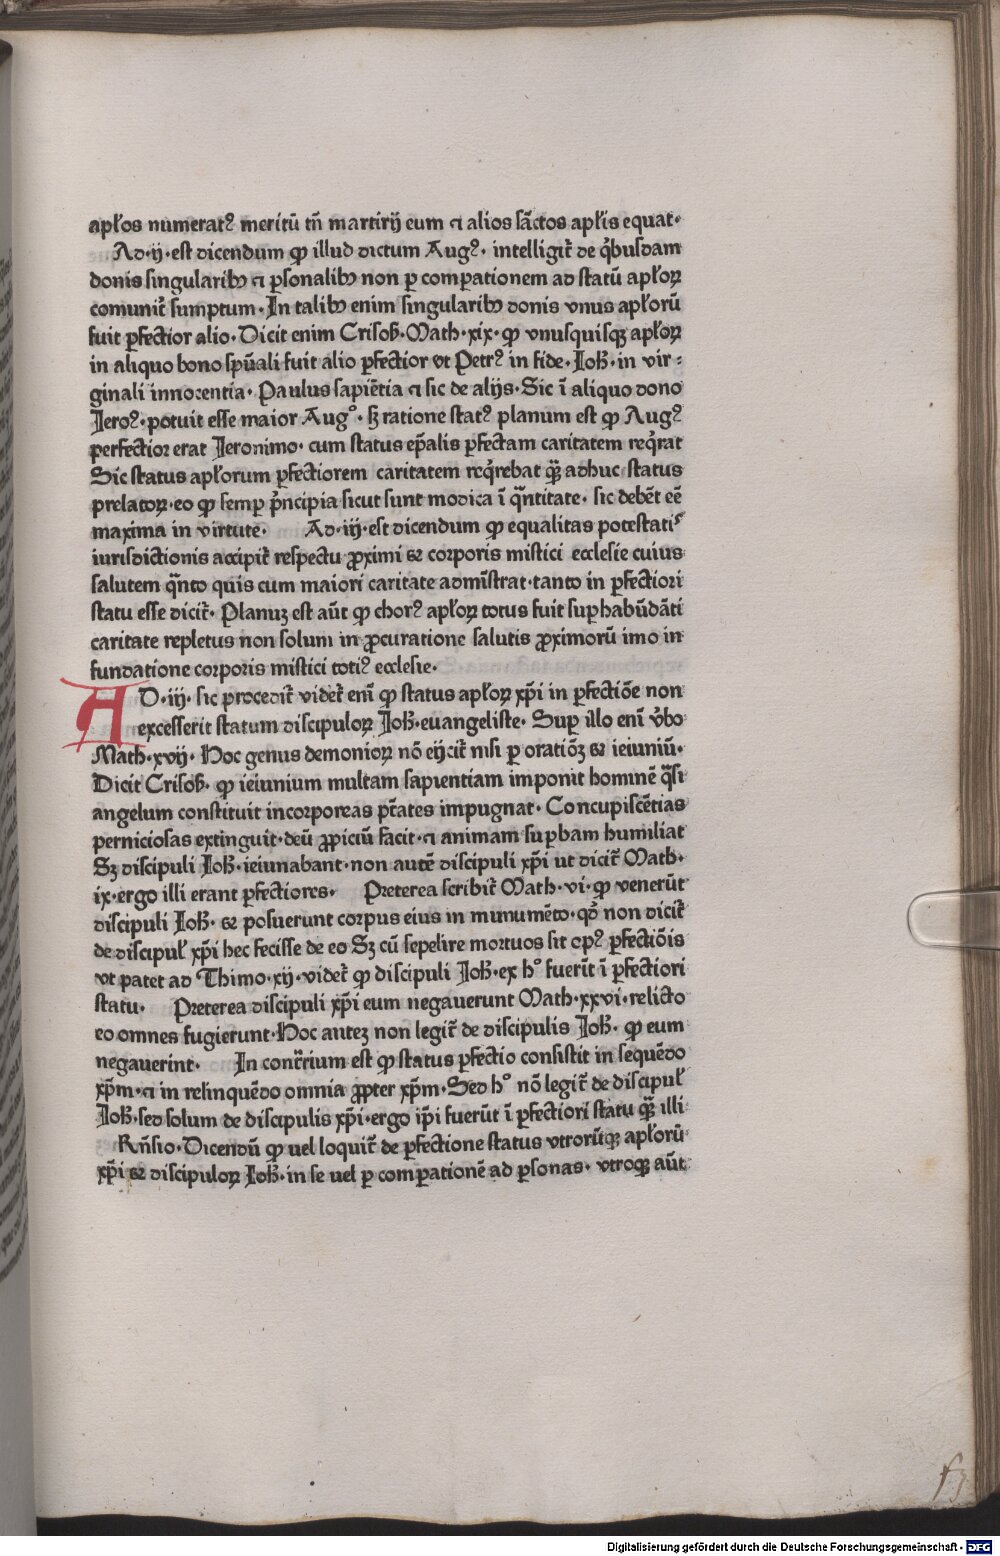 apl̃os numerat᷒ meritū tñ martirij eum ⁊ alios sãctos apl̃is equat·
Ad·ij·est dicendum ꝙ illud dictum Aug᷒· intelligit̃ de q̾busdam
donis singularibꝫ ⁊ ꝑsonalibꝫ non ꝑ comꝑationem ad statū apl̃oꝝ
comunit̃ sumptum· In talibꝫ enim singularibꝫ donis vnus apl̃orū
fuit ꝑfectior alio· Dicit enim Crisoſt·Math·xix·ꝙ vnusquisqꝫ apl̃oꝝ
in aliquo bono spũali fuit alio ꝑfectior vt Petr᷒ in fide· Joh̃· in vir:
ginali innocentia· Paulus sapiẽtia ⁊ sic de alijs· Sic ĩ aliquo dono
Jero᷒· potuit esse maior Augᵒ· sꝫ ratione stat᷒ planum est ꝙ Aug᷒
perfectior erat Jeronimo· cum status ep̃alis ꝑfectam caritatem req̾rat
Sic status apl̃orum ꝑfectiorem caritatem req̾rebat qᷓꝫ adhuc status
prelatoꝝ·eo ꝙ semꝑ p̾ncipia sicut sunt modica ĩ qᷓntitate· sic debẽt eẽ
maxima in virtute· Ad·iij·est dicendum ꝙ equalitas potestatis
iurisdictionis accipit̃ respectu ꝓximi ⁊ corporis mistici ecclesie cuius
salutem qᷓnto quis cum maiori caritate admĩstrat·tanto in ꝑfectiori
statu esse dicit̃· Planuꝫ est aũt ꝙ chor᷒ apl̃oꝝ totus fuit suꝑhabũdãti
caritate repletus non solum in ꝓcuratione salutis ꝓximorū imo in
fundatione corporis mistici toti᷒ ecclesie·
AD·iij· sic procedit̃ videt̃ enĩ ꝙ status apl̃oꝝ xp̃i in ꝑfectiõe non
excesserit statum discipuloꝝ Joh̃·euangeliste· Suꝑ illo enĩ v̾bo
Math·xvij· Hoc genus demonioꝝ nõ eijcit̃ nisi ꝑ oratiõꝫ ⁊ ieiuniū·
Dicit Crisoſt· ꝙ ieiunium multam sapientiam imponit hominẽ qᷓsi
angelum constituit incorporeas p̃tates impugnat· Concupiscẽtias
perniciosas extinguit·deū ꝓpiciū facit·⁊ animam suꝑbam humiliat
Sꝫ discipuli Joh̃·ieiunabant·non autẽ discipuli xp̃i ut dicit̃ Math·
ix·ergo illi erant ꝑfectiores· Preterea scribit̃ Math·vi·ꝙ venerūt
discipuli Joh̃· ⁊ posuerunt corpus eius in munumẽto·qd̾ non dicit̃
de discipul̃ xp̃i hec fecisse de eo Sꝫ cū sepelire mortuos sit op᷒ ꝑfectiõis
vt patet ad Thimo·xij·videt̃ ꝙ discipuli Joh̃·ex hᵒ fuerūt ĩ ꝑfectiori
statu· Preterea discipuli xp̃i eum negauerunt Math·xxvi·relicto
eo omnes fugierunt·Hoc auteꝫ non legit̃ de discipulis Joh̃· ꝙ eum
negauerint· In cont̃rium est ꝙ status ꝑfectio consistit in sequẽdo
xp̃m·⁊ in relinquẽdo omnia ꝓpter xp̃m·Sed hᵒ nõ legit̃ de discipul̃
Joh̃·sed solum de discipulis xp̃i·ergo ip̃i fuerūt ĩ ꝑfectiori statu qᷓꝫ illi
Rñsio·Dicendū ꝙ uel loquit̃ de ꝑfectione status vtrorūqꝫ apl̃orū
xp̃i ⁊ discipuloꝝ Joh̃·in se uel ꝑ comꝑationẽ ad ꝑsonas· vtroqꝫ aũt
Digitalisierung gefördert durch die Deutsche Forschungsgemeinschaft · DFG